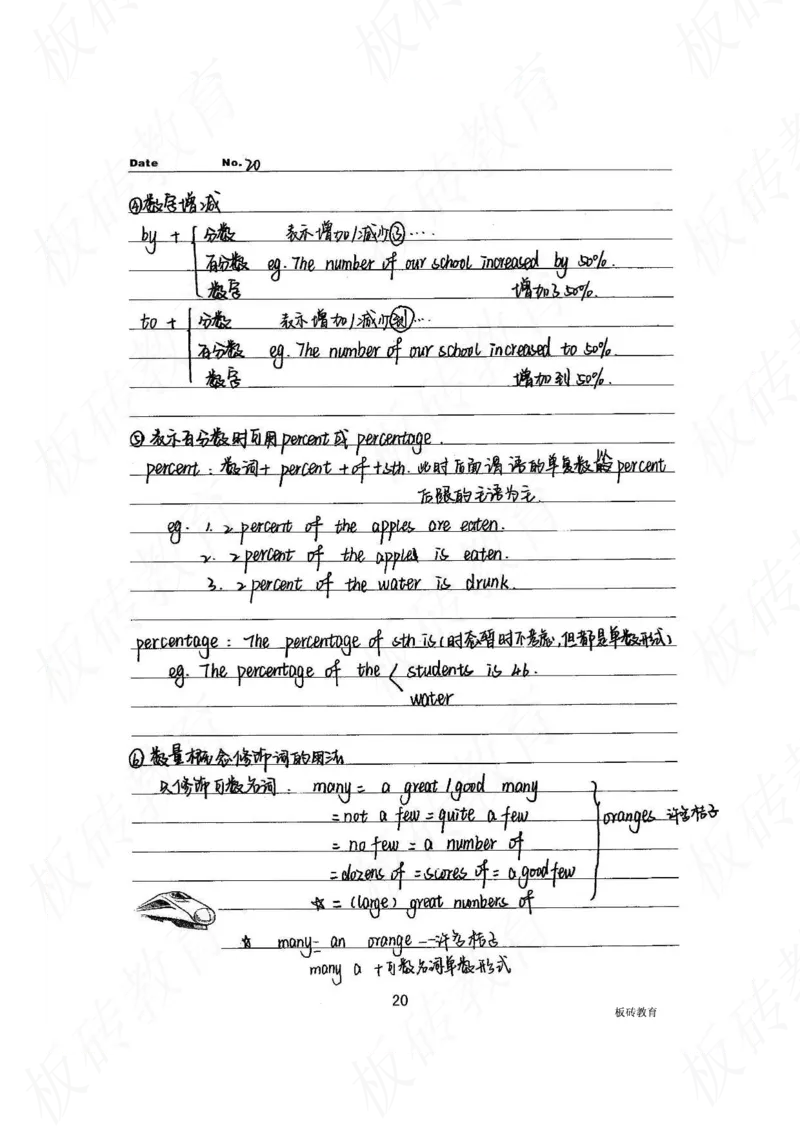 Date No. 20
④数字增减
by + { 分数 表示增加/减少了....
百分数 eg. The number of our school increased by 50%.
数字 增加了50%.
to + { 分数 表示增加/减少到...
百分数 eg. The number of our school increased to 50%.
数字 增加到50%.
⑤表示百分数时可用percent或percentage.
percent: 数词+ percent + of + sth. 此时后面谓语的单复数 percent
后跟的主语为主.
eg. 1. 2 percent of the apples are eaten.
2. 2 percent of the apple is eaten.
3. 2 percent of the water is drunk.
percentage: The percentage of sth is (时态暂时不考虑,但都是单数形式)
eg. The percentage of the < students is 46.
water
⑥数量概念修饰词的用法
只修饰可数名词. many = a great / good many
= not a few = quite a few
oranges 许多桔子
= no few = a number of
= dozens of = scores of = a good few
☆ = (large) great numbers of
☆ many = an orange --许多桔子
many a +可数名词单数形式
20
板砖教育
板砖教育